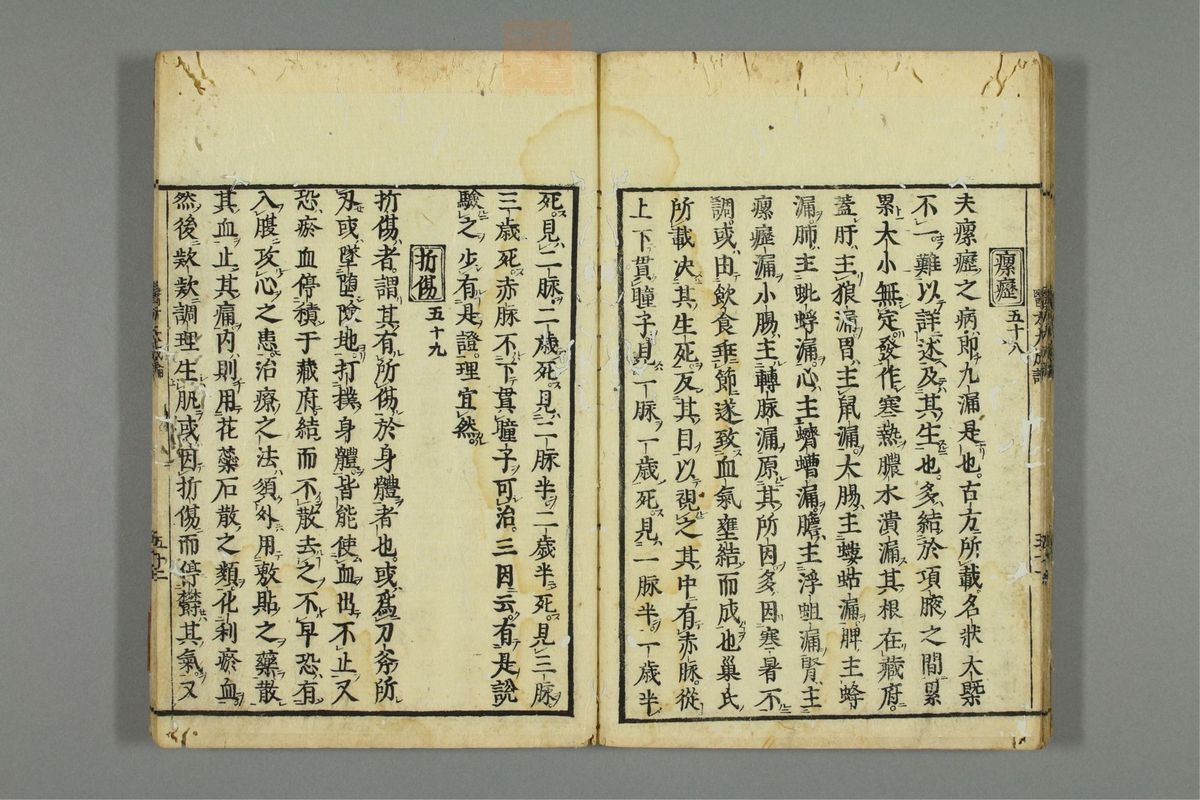 瘰癧 五十八
夫瘰癧之病即九漏是也古方所載名狀大槩
不一難以詳述及其生也多結於項腋之間累
累大小無定發作寒熱膿水潰漏其根在藏府
蓋肝主狼漏胃主鼠漏大腸主螻蛄漏脾主蜂
漏肺主蚍蜉漏心主蠐螬漏膽主浮蛆漏腎主
瘰癧漏小腸主轉脉漏原其所因多因寒暑不
調或由飲食乖節遂致血氣壅結而成也巢氏
所載決其生死反其目以視之其中有赤脉從
上下貫瞳子見一脉一歲死見一脉半一歲半
死見二脉二歲死見二脉半二歲半死見三脉
三歲死赤脉不下貫瞳子可治三因云有是說
驗之少有是證理宜然
折傷 五十九
折傷者謂其有所傷於身體者也或爲刀斧所
刃或墜墮險地打撲身體皆能使血出不止又
恐瘀血停積于藏府結而不散去之不早恐有
入腹攻心之患治療之法須外用敷貼之藥散
其血止其痛内則用花藥石散之類化利瘀血
然後欵欵調理生肌或因折傷而停欝其氣又